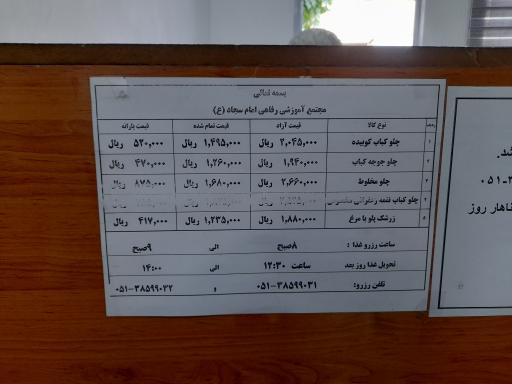 بسمه تعالی
مجتمع آموزشی رفاهی امام سجاد (ع)
ردیف نوع کالا قیمت آزاد قیمت تمام شده قیمت یارانه
۱ چلو کباب کوبیده ۲,۰۴۵,۰۰۰ ریال ۱,۴۹۵,۰۰۰ ریال ۵۲۰,۰۰۰ ریال
۲ چلو جوجه کباب ۱,۹۴۰,۰۰۰ ریال ۱,۲۶۰,۰۰۰ ریال ۴۷۰,۰۰۰ ریال
۳ چلو مخلوط ۲,۶۶۰,۰۰۰ ریال ۱,۶۸۰,۰۰۰ ریال ۸۷۵,۰۰۰ ریال
۴ چلو کباب لقمه زعفرانی مخصوص ریال ریال ریال
۵ زرشک پلو با مرغ ۱,۸۸۰,۰۰۰ ریال ۱,۲۳۵,۰۰۰ ریال ۴۱۷,۰۰۰ ریال
ساعت رزرو غذا : ۸صبح الی ۹صبح
تحویل غذا روز بعد ساعت ۱۲:۳۰ الی ۱۴:۰۰
تلفن رزرو: ۰۵۱-۳۸۵۹۹۰۳۱ و ۰۵۱-۳۸۵۹۹۰۳۲
شد.
۰۵۱-۳
ناهار روز